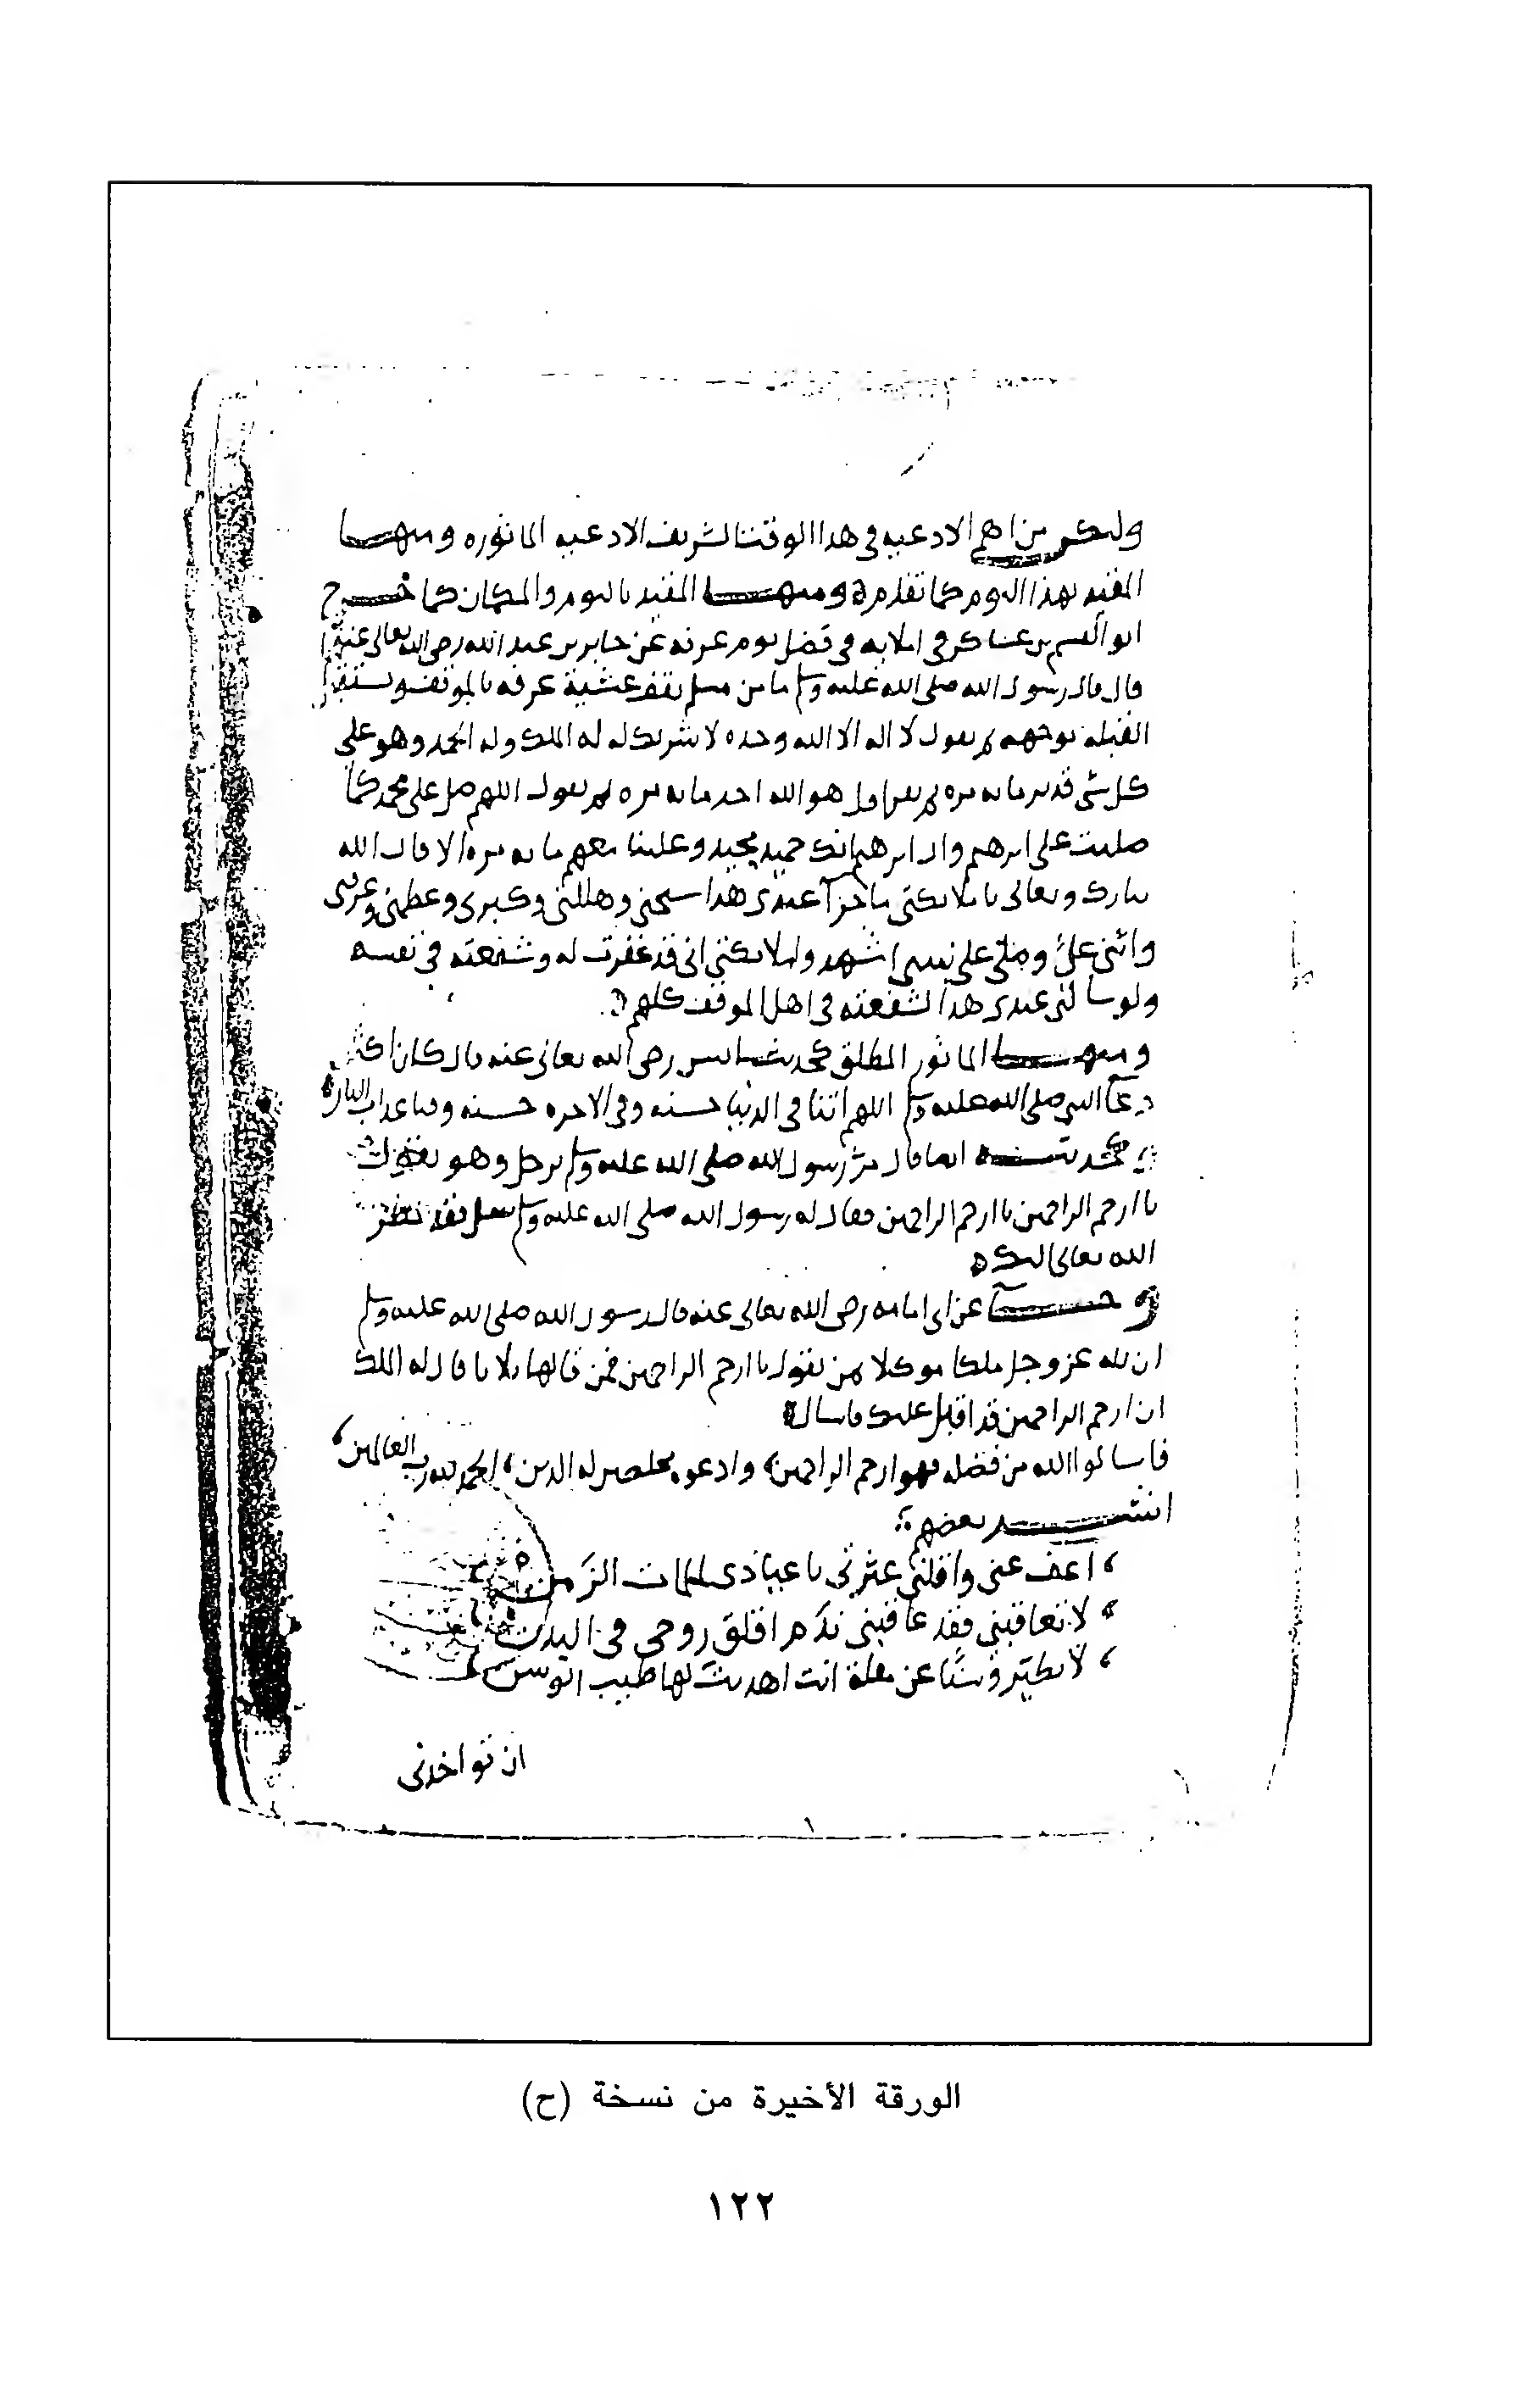 وليكن من اهم الادعيه في هذا الوقت الشريف الادعيه الماثوره ومنها
المقيد بهذا اليوم كما تقدم ومنها المقيد باليوم والمكان كما خرج
ابو القسم بن عساكر في املايه في فضل يوم عرفه عن جابر بن عبد الله رضي الله تعالى عنهما
قال قال رسول الله صلى الله عليه وسلم ما من مسلم يقف عشية عرفه بالموقف ويستقبل
القبلة بوجهه ثم يقول لا اله الا الله وحده لا شريك له له الملك وله الحمد وهو على
كل شي قدير مايه مره ثم يقرا قل هو الله احد مايه مره ثم يقول اللهم صل على محمد كما
صليت على ابرهيم وال ابرهيم انك حميد مجيد وعلينا معهم مايه مره الا قال الله
تبارك وتعالى يا ملايكتي ما جزآ عبدي هذا سبحني وهللني وكبرني وعظمني وعرفني
واثنى عليَّ وصلى على نبيي اشهدوا ملايكتي اني قد غفرت له وشفعته في نفسه
ولو سالني عبدي هذا لشفعته في اهل الموقف كلهم
ومنها الماثور المطلق كحديث انس رضي الله تعالى عنه قال كان اكثر
دعآ النبي صلى الله عليه وسلم اللهم اتنا في الدنيا حسنه وفي الاخره حسنه وقنا عذاب النار
وكحديثه ايضا قال مرّ رسول الله صلى الله عليه وسلم برجل وهو يقول
يا ارحم الراحمين يا ارحم الراحمين فقال له رسول الله صلى الله عليه وسلم سل فقد نظر
الله تعالى اليك
وجآ عن ابي امامه رضي الله تعالى عنه قال رسول الله صلى الله عليه وسلم
ان لله عز وجل ملكا موكلا بمن يقول يا ارحم الراحمين فمن قالها ثلاثا قال له الملك
ان ارحم الراحمين قد اقبل عليك فاساله
فاسالوا الله من فضله فهو ارحم الراحمين وادعوه مخلصين له الدين الحمد لله رب العالمين
انشد بعضهم
اعف عني واقلني عثرتي يا عياذي لملمات الزمن
لا تعاقبني فقد عاقبني ندم اقلق روحي في البدن
لا تطير وسنًا عن مقلة انت اهديت لها طيب الوسن
ان تواخذني
الورقة الأخيرة من نسخة (ح)
١٢٢